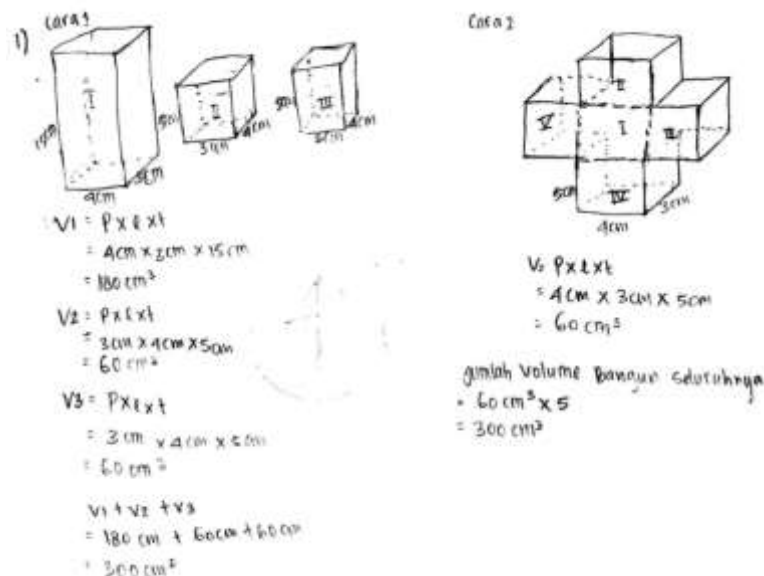 1) Cara 1
I
II
III
15cm
3cm
4cm
5cm
3cm
4cm
5cm
4cm
V1 = P x l x t
= 4cm x 3cm x 15cm
= 180 cm³
V2 = P x l x t
= 3cm x 4cm x 5cm
= 60 cm³
V3 = P x l x t
= 3 cm x 4 cm x 5 cm
= 60 cm³
V1 + V2 + V3
= 180 cm + 60cm + 60 cm
= 300 cm³
Cara 2
II
V
I
III
IV
5cm
4cm
3cm
V = P x l x t
= 4cm x 3cm x 5cm
= 60 cm³
Jumlah Volume Bangun seluruhnya
= 60 cm³ x 5
= 300 cm³